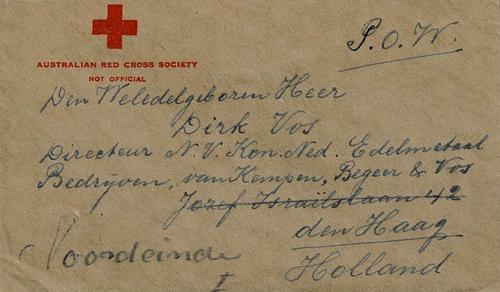 P.O.W.
AUSTRALIAN RED CROSS SOCIETY
NOT OFFICIAL
Den Weledelgeboren Heer
Dirk Vos
Directeur N.V. Kon. Ned. Edelmetaal
Bedrijven, van Kempen, Begeer & Vos
Jozef Israëlslaan 42
den Haag
Voordeinde
I
Holland